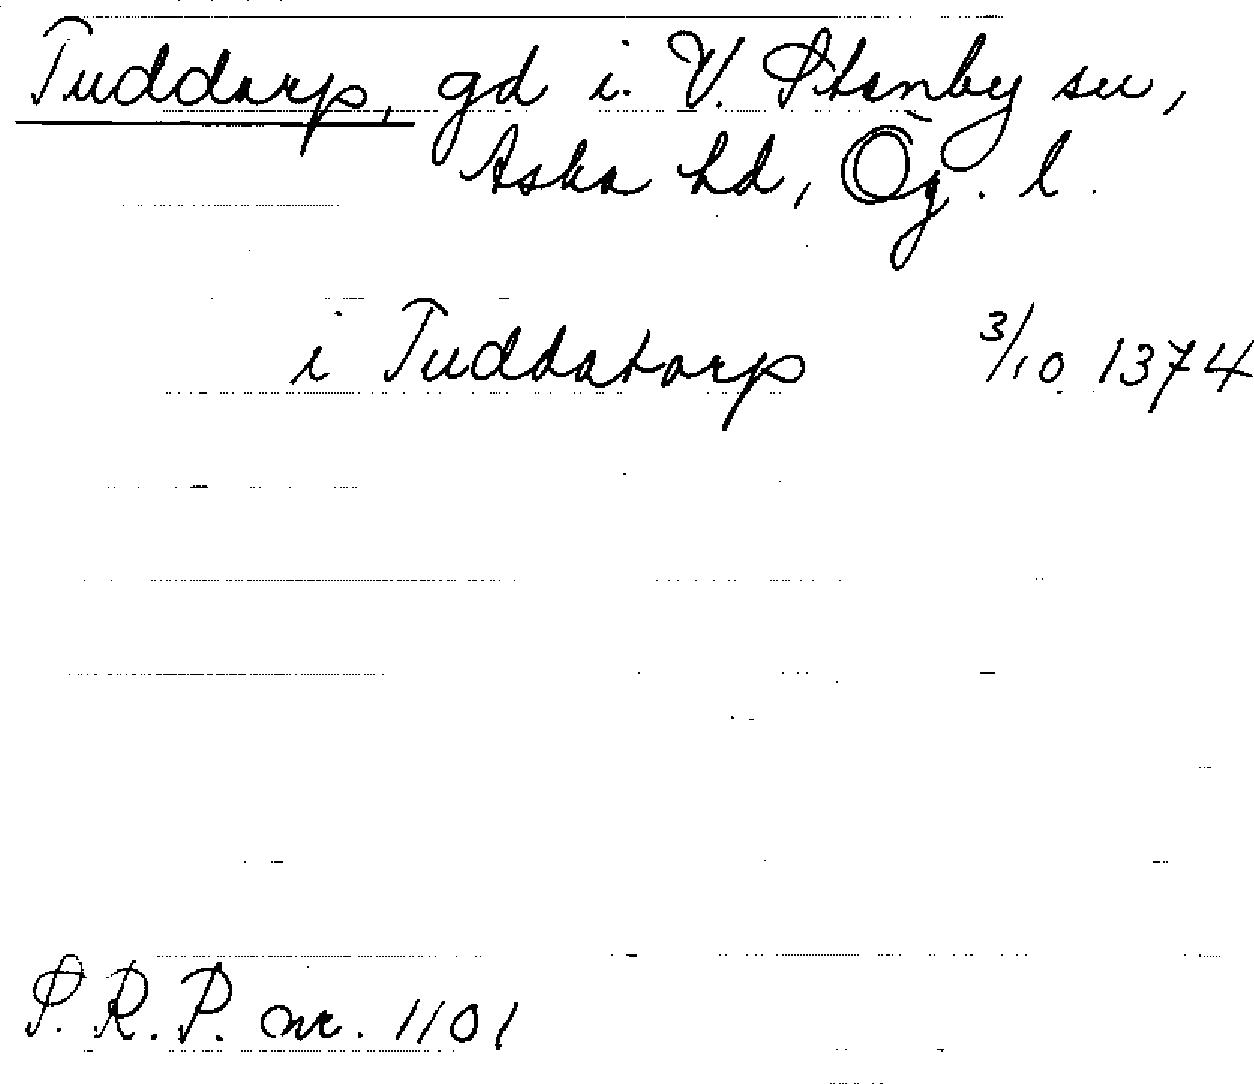 Tuddarp, gd i. V. Stenby sn,
Aska hd, Ög. l.
i Tuddatorp 3/10 1374
S.R.P. nr. 1101